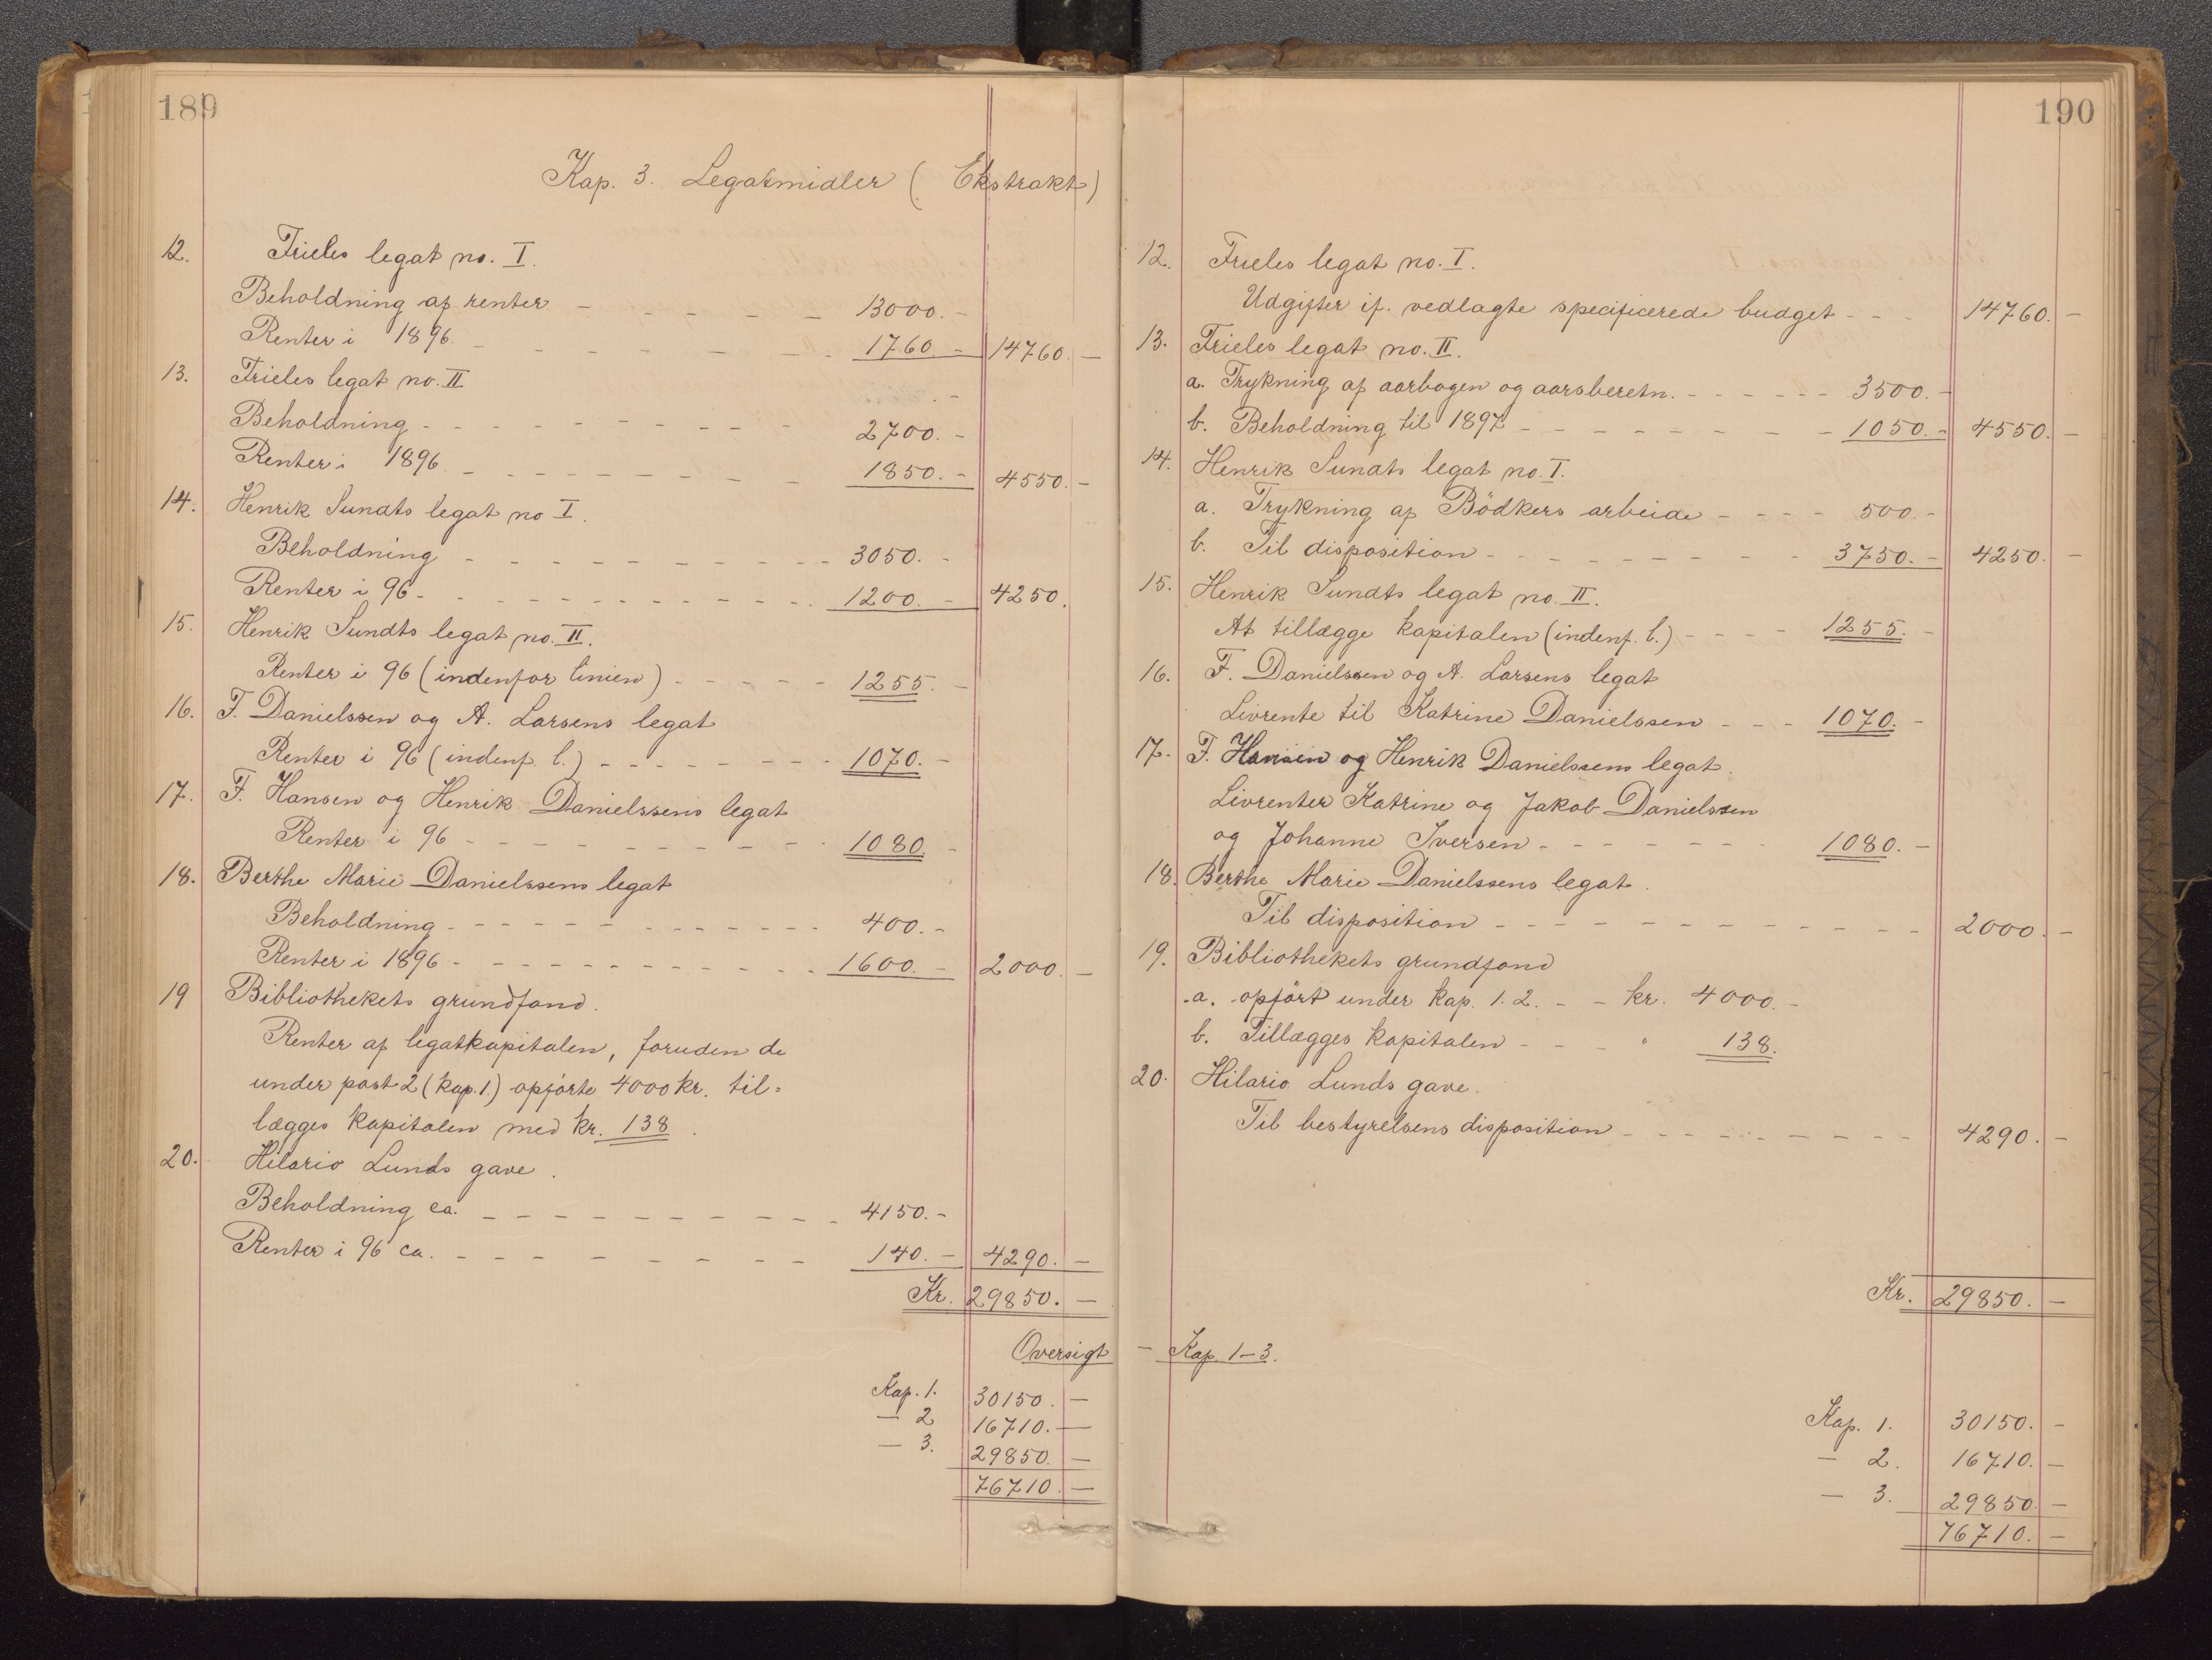 189
Kap. 3. Legatmidler (Ekstrakt)
12. Frieles legat no. I.
Beholdning af renter - - - - - - 13000. -
Renter i 1896. - - - - - - - - - 1760. - 14760. -
13. Frieles legat no. II
Beholdning - - - - - - - - - - 2700. -
Renter i 1896. - - - - - - - - - 1850. - 4550. -
14. Henrik Sundts legat no I.
Beholdning - - - - - - - - - - 3050. -
Renter i 96 - - - - - - - - - - - 1200. - 4250.
15. Henrik Sundts legat no. II.
Renter i 96 (indenfor linien) - - - - - 1255. -
16. F. Danielssen og A. Larsens legat
Renter i 96 (indenf. l.) - - - - - - - 1070. -
17. F. Hansen og Henrik Danielssens legat
Renter i 96 - - - - - - - - - - 1080. -
18. Berthe Marie Danielssens legat
Beholdning - - - - - - - - - - - 400. -
Renter i 1896 - - - - - - - - - - 1600. - 2000. -
19 Bibliothekets grundfond.
Renter af legatkapitalen, foruden de
under post 2 (kap. 1.) opførte 4000 kr. til=
lægges kapitalen med kr. 138.
20. Hilario Lunds gave.
Beholdning ca. - - - - - - - - - 4150. -
Renter i 96 ca. - - - - - - - - - 140. - 4290. -
Kr. 29850. -
Oversigt
Kap. 1. 30150. -
- 2 16710. -
- 3. 29850. -
76710. -
190
12. Frieles legat no. I.
Udgifter if. vedlagte specificerede budget - - - 14760. -
13. Frieles legat no. II.
a. Trykning af aarbogen og aarsberetn. - - - - - - 3500. -
b. Beholdning til 1897 - - - - - - - - - 1050. - 4550. -
14. Henrik Sundts legat no. I.
a. Trykning af Bödkers arbeide - - - - 500. -
b. Til disposition - - - - - - - - - 3750. - 4250. -
15. Henrik Sundts legat no. II.
At tillægge kapitalen (indenf. l.) - - - - 1255. -
16. F. Danielssen og A. Larsens legat
Livrente til Katrine Danielssen - - - 1070. -
17. F. Hansen og Henrik Danielssens legat.
Livrenter Katrine og Jakob Danielssen
og Johanne Iversen - - - - - - 1080. -
18. Berthe Marie Danielssens legat.
Til disposition - - - - - - - - - - - 2000. -
19. Bibliothekets grundfond
a. opført under kap. 1. 2. - - kr. 4000. -
b. Tillægges kapitalen - - - " 138.
20. Hilario Lunds gave.
Til bestyrelsens disposition - - - - - - - - 4290. -
Kr. 29850. -
- Kap. 1-3.
Kap. 1. 30150. -
- 2. 16710. -
- 3. 29850. -
76710. -